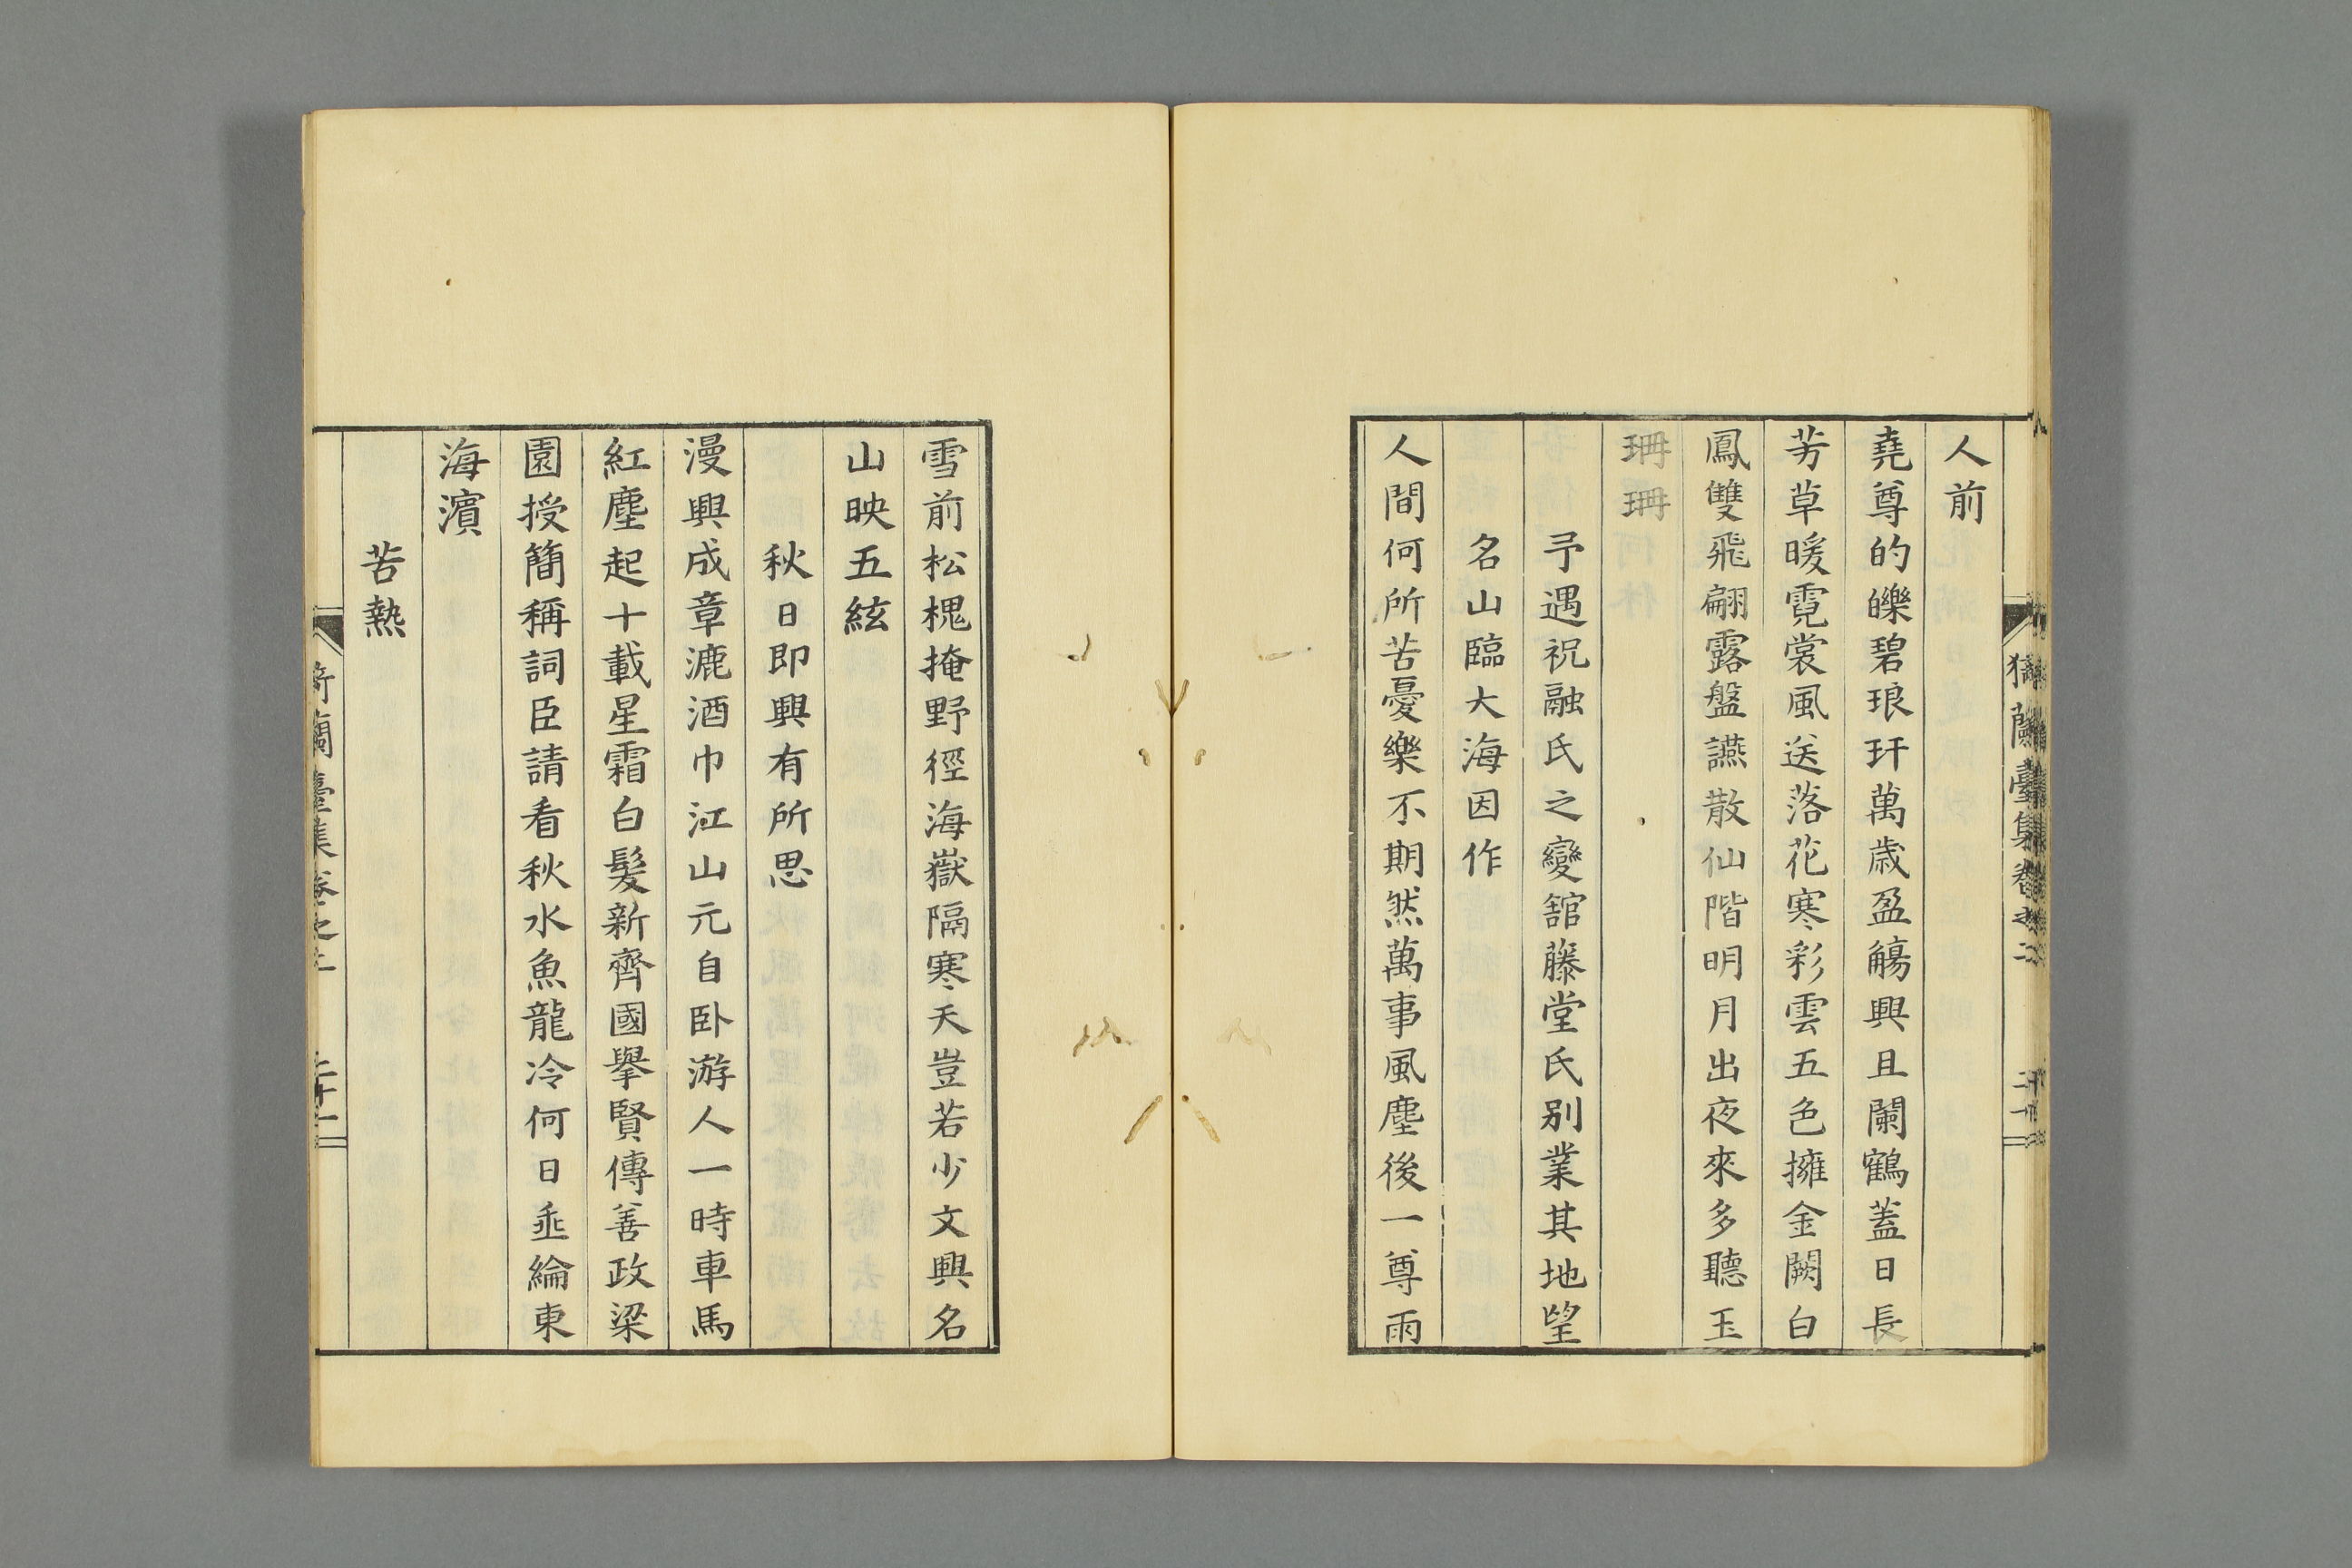 人前
堯尊的皪碧琅玕萬歲盈觴興且闌鶴蓋日長
芳草暖霓裳風送落花寒彩雲五色擁金闕白
鳳雙飛翩露盤讌散仙階明月出夜來多聽玉
珊珊
予遇祝融氏之變舘藤堂氏別業其地望
名山臨大海因作
人間何所苦憂樂不期然萬事風塵後一尊雨
雪前松槐掩野徑海嶽隔寒天豈若少文興名
山映五絃
秋日即興有所思
漫興成章漉酒巾江山元自卧游人一時車馬
紅塵起十載星霜白髮新齊國擧賢傳善政梁
園授簡稱詞臣請看秋水魚龍冷何日垂綸東
海濱
苦熱
蘭臺集卷之二